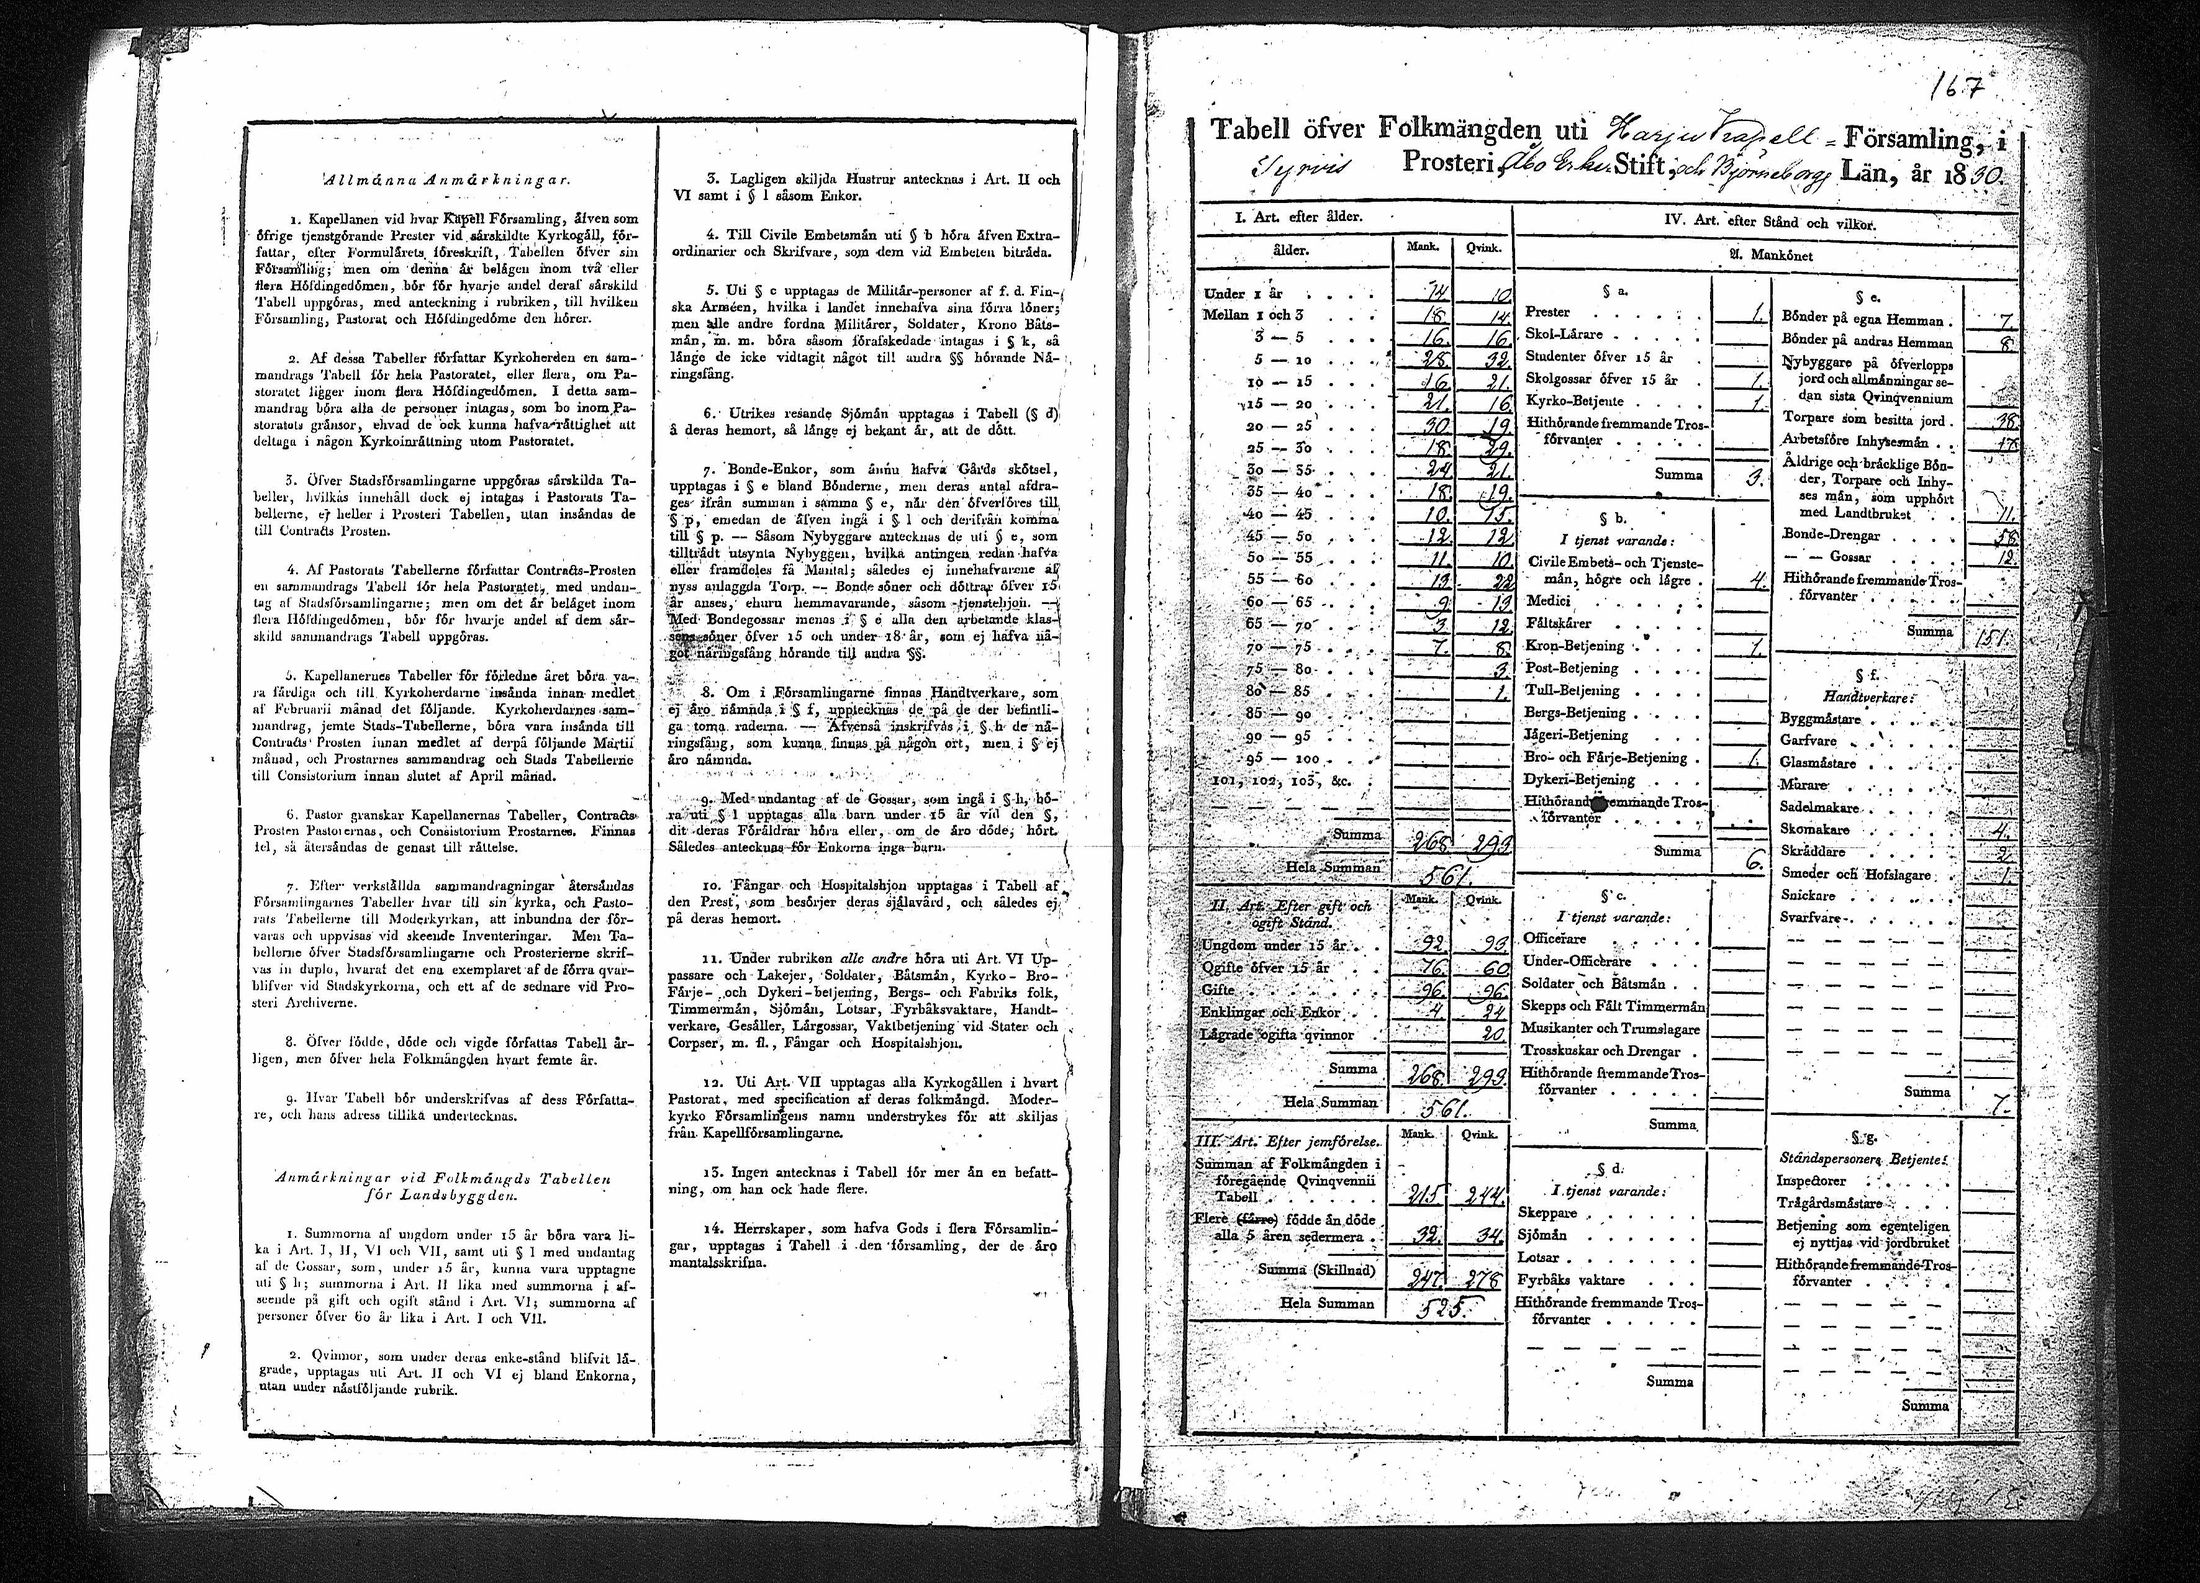 Allmänna Anmärkningar.
1. Kapellanen vid hvar Kapell Församling, äfven som
öfrige tjenstgörande Prester vid särskildte Kyrkogäll, för-
fattar, efter Formulärets föreskrift, Tabellen öfver sin
Församling; men om denna är belägen inom två eller
flera Höfdingedömen, bör för hvarje andel deraf särskild
Tabell uppgöras, med anteckning i rubriken, till hvilken
Församling, Pastorat och Höfdingedöme den hörer.
2. Af dessa Tabeller författar Kyrkoherden en sam-
mandrags Tabell för hela Pastoratet, eller flera, om Pa-
storatet ligger inom flera Höfdingedömen. I detta sam-
mandrag böra alla de personer intagas, som bo inom Pa-
storatets gränsor, ehvad de ock kunna hafva rättighet att
deltaga i någon Kyrkoinrättning utom Pastoratet.
3. Öfver Stadsförsamlingarne uppgöras särskilda Ta-
beller, hvilkas innehåll dock ej intagas i Pastorats Ta-
bellerne, ej heller i Prosteri Tabellen, utan insändas de
till Contracts Prosten.
4. Af Pastorats Tabellerne författar Contracts-Prosten
en sammandrags Tabell för hela Pastoratet, med undan-
tag af Stadsförsamlingarne; men om det är beläget inom
flera Höfdingedömen, bör för hvarje andel af dem sär-
skild sammandrags Tabell uppgöras.
5. Kapellanernes Tabeller för förledne året böra va-
ra färdiga och till Kyrkoherdarne insända innan medlet
af Februarii månad det följande. Kyrkoherdarnes sam-
mandrag, jemte Stads-Tabellerne, böra vara insända till
Contracts Prosten innan medlet af derpå följande Martii
månad, och Prostarnes sammandrag och Stads Tabellerne
till Consistorium innan slutet af April månad.
6. Pastor granskar Kapellanernas Tabeller, Contracts
Prosten Pastorernas, och Consistorium Prostarnes. Finnas
fel, så återsändas de genast till rättelse.
7. Efter verkställda sammandragningar återsändas
Församlingarnes Tabeller hvar till sin kyrka, och Pasto-
rats Tabellerne till Moderkyrkan, att inbundna der för-
varas och uppvisas vid skeende Inventeringar. Men Ta-
bellerne öfver Stadsförsamlingarne och Prosterierne skrif-
vas in duplo, hvaraf det ena exemplaret af de förra qvar-
blifver vid Stadskyrkorna, och ett af de sednare vid Pro-
steri Archiverne.
8. Öfver födde, döde och vigde författas Tabell år-
ligen, men öfver hela Folkmängden hvart femte år.
9. Hvar Tabell bör underskrifvas af dess Författa-
re, och hans adress tillika undertecknas.
Anmärkningar vid Folkmängds Tabellen
för Landsbyggden.
1. Summorna af ungdom under 15 år böra vara li-
ka i Art. I, II, VI och VII, samt uti § l med undantag
af de Gossar, som, under 15 år, kunna vara upptagne
uti § h; summorna i Art. II lika med summorna i af-
seende på gift och ogift stånd i Art. VI; summorna af
personer öfver 60 år lika i Art. I och VII.
2. Qvinnor, som under deras enke-stånd blifvit lä-
grade, upptagas uti Art. II och VI ej bland Enkorna,
utan under nästföljande rubrik.
3. Lagligen skiljda Hustrur antecknas i Art. II och
VI samt i § l såsom Enkor.
4. Till Civile Embetsmän uti § b höra äfven Extra-
ordinarier och Skrifvare, som dem vid Embeten biträda.
5. Uti § c upptagas de Militär-personer af f. d. Fin-
ska Arméen, hvilka i landet innehafva sina förra löner;
men alle andre fordna Militärer, Soldater, Krono Båts-
män, m. m. böra såsom förafskedade intagas i § k, så
länge de icke vidtagit något till andra §§ hörande Nä-
ringsfång.
6. Utrikes resande Sjömän upptagas i Tabell (§ d)
å deras hemort, så länge ej bekant är, att de dött.
7. Bonde-Enkor, som ännu hafva Gårds skötsel,
upptagas i § e bland Bönderne, men deras antal afdra-
ges ifrån summan i samma § e, när den öfverföres till
§ p, emedan de äfven ingå i § l och derifrån komma
till § p. — Såsom Nybyggare antecknas de uti § e, som
tillträdt utsynta Nybyggen, hvilka antingen redan hafva
eller framdeles få Mantal; således ej innehafvarene af
nyss anlaggda Torp. — Bonde söner och döttrar öfver 15
år anses, ehuru hemmavarande, såsom tjenstehjon. —
Med Bondegossar menas i § e alla den arbetande klas-
sens söner öfver 15 och under 18 år, som ej hafva nå-
got näringsfång hörande till andra §§.
8. Om i Församlingarne finnas Handtverkare, som
ej äro nämnda i § f, upptecknas de på de der befintli-
ga toma raderna. — Äfvenså inskrifvas i § h de nä-
ringsfång, som kunna finnas på någon ort, men i § ej
äro nämnda.
9. Med undantag af de Gossar, som ingå i § h, hö-
ra uti § l upptagas alla barn under 15 år vid den §,
dit deras Föräldrar höra eller, om de äro döde, hört.
Således antecknas för Enkorna inga barn.
10. Fångar och Hospitalshjon upptagas i Tabell af
den Prest, som besörjer deras själavård, och således ej
på deras hemort.
11. Under rubriken alle andre höra uti Art. VI Up-
passare och Lakejer, Soldater, Båtsmän, Kyrko- Bro-
Färje- och Dykeri-betjening, Bergs- och Fabriks folk,
Timmermän, Sjömän, Lotsar, Fyrbåksvaktare, Handt-
verkare, Gesäller, Lärgossar, Vaktbetjening vid Stater och
Corpser, m. fl., Fångar och Hospitalshjon.
12. Uti Art. VII upptagas alla Kyrkogällen i hvart
Pastorat, med specification af deras folkmängd. Moder-
kyrko Församlingens namn understrykes för att skiljas
från Kapellförsamlingarne.
13. Ingen antecknas i Tabell för mer än en befatt-
ning, om han ock hade flere.
14. Herrskaper, som hafva Gods i flera Församlin-
gar, upptagas i Tabell i den församling, der de äro
mantalsskrifna.
167
Tabell öfver Folkmängden uti Harju Kapell = Församling, i
Tyrvis Prosteri, Åbo Erke Stift, och Björneborgs Län, år 1830.
I. Art. efter ålder.
ålder. Mank. Qvink.
Under 1 år 14 10
Mellan 1 och 3 18 14
3 — 5 16 16
5 — 10 28 32
10 — 15 16 21
15 — 20 21 16
20 — 25 30 19
25 — 30 18 29
30 — 35 24 21
35 — 40 18 19
40 — 45 10 15
45 — 50 12 12
50 — 55 11 10
55 — 60 13 22
60 — 65 9 13
65 — 70 3 12
70 — 75 7 8
75 — 80 3
80 — 85 1
85 — 90
90 — 95
95 — 100
101, 102, 103, &c.
Summa 268 293
Hela Summan 561.
II. Art. Efter gift och ogift Stånd. Mank. Qvink.
Ungdom under 15 år 92 93
Ogifte öfver 15 år 76 60
Gifte 96 96
Enklingar och Enkor 4 24
Lägrade ogifta qvinnor 20
Summa 268 293
Hela Summan 561.
III. Art. Efter jemförelse. Mank. Qvink.
Summan af Folkmängden i
föregående Qvinqvennii
Tabell 215 244
Flere (färre) födde än döde
alla 5 åren sedermera 32 34
Summa (Skillnad) 247 278
Hela Summan 525.
IV. Art. efter Stånd och vilkor.
A. Mankönet
§ a.
Prester 1.
Skol-Lärare
Studenter öfver 15 år
Skolgossar öfver 15 år 1.
Kyrko-Betjente 1.
Hithörande fremmande Tros-
förvanter
Summa 3.
§ b.
I tjenst varande:
Civile Embets- och Tjenste-
män, högre och lägre 4.
Medici
Fältskärer
Kron-Betjening 1.
Post-Betjening
Tull-Betjening
Bergs-Betjening
Jägeri-Betjening
Bro- och Färje-Betjening 1.
Dykeri-Betjening
Hithörande fremmande Tros-
förvanter
Summa 6.
§ c.
I tjenst varande:
Officerare
Under-Officerare
Soldater och Båtsmän
Skepps och Fält Timmermän
Musikanter och Trumslagare
Trosskuskar och Drengar
Hithörande fremmande Tros-
förvanter
Summa
§ d.
I tjenst varande:
Skeppare
Sjömän
Lotsar
Fyrbåks vaktare
Hithörande fremmande Tros-
förvanter
Summa
§ e.
Bönder på egna Hemman 7.
Bönder på andras Hemman 8.
Nybyggare på öfverlopps
jord och allmänningar se-
dan sista Qvinqvennium
Torpare som besitta jord 38
Arbetsföre Inhysesmän 17
Åldrige och bräcklige Bön-
der, Torpare och Inhy-
ses män, som upphört
med Landtbruket 11.
Bonde-Drengar 58
— — Gossar 12.
Hithörande fremmande Tros-
förvanter
Summa 151.
§ f.
Handtverkare:
Byggmästare
Garfvare
Glasmästare
Murare
Sadelmakare
Skomakare 4.
Skräddare 2
Smeder och Hofslagare 1.
Snickare
Svarfvare
Summa 7.
§ g.
Ståndspersoners Betjente:
Inspectorer
Trägårdsmästare
Betjening som egenteligen
ej nyttjas vid jordbruket
Hithörande fremmande Tros-
förvanter
Summa